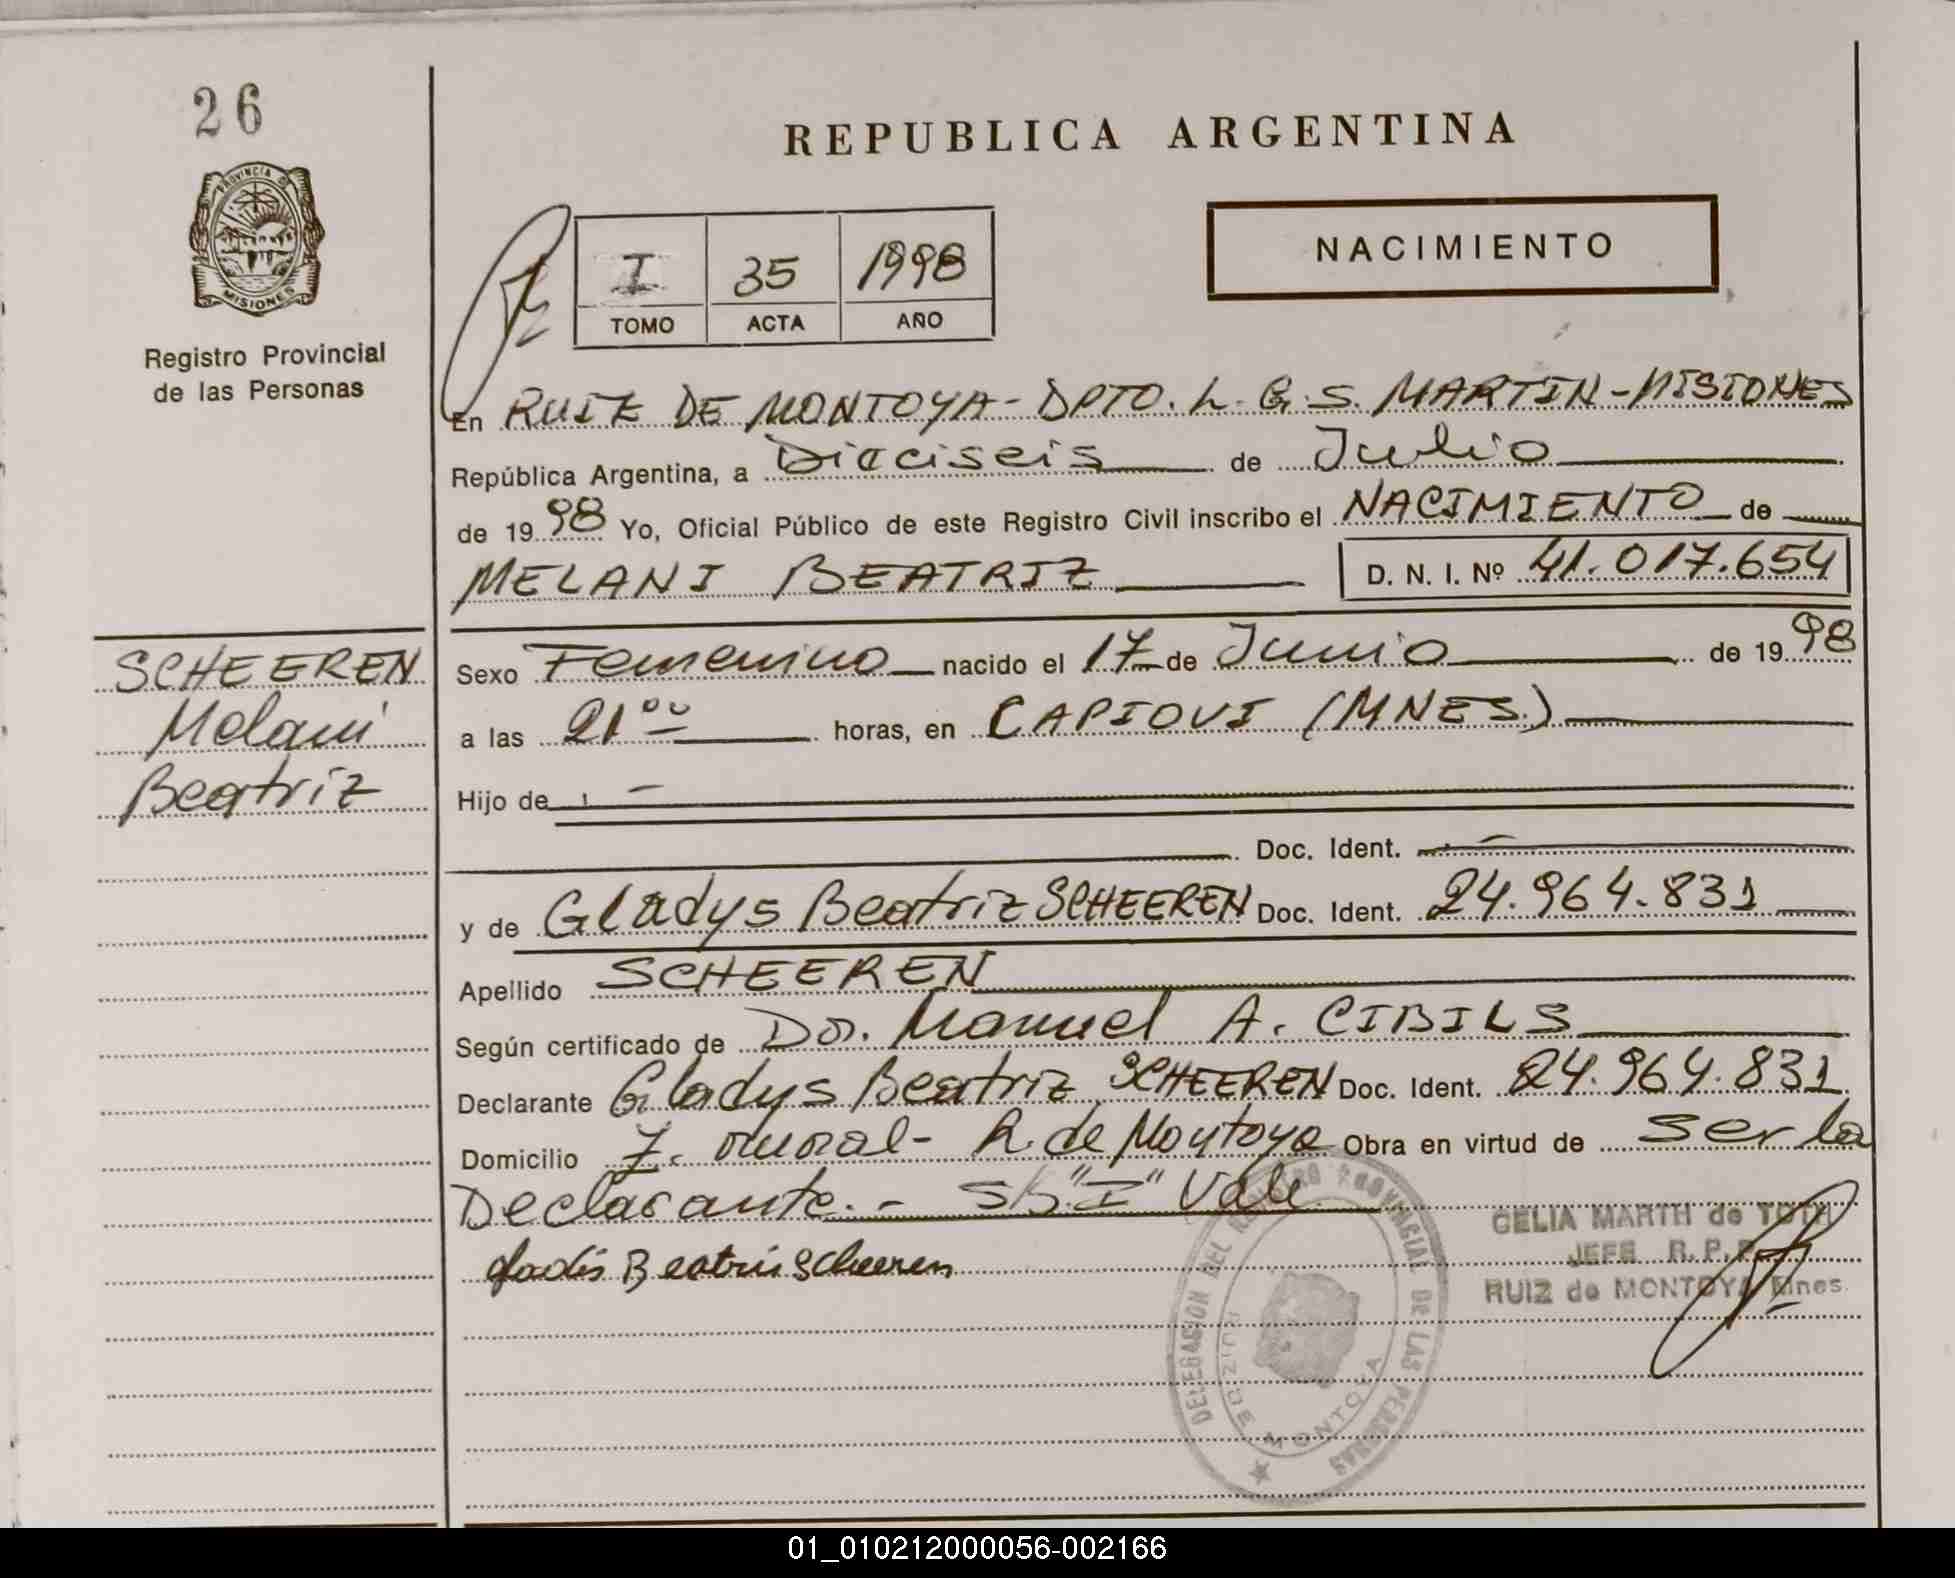 26
REPUBLICA ARGENTINA
PROVINCIA DE
MISIONES
Registro Provincial
de las Personas
I 35 1998
TOMO ACTA AÑO
NACIMIENTO
En RUIZ DE MONTOYA - DPTO. L. G. S. MARTIN - MISIONES
República Argentina, a Dieciseis de Julio
de 19 98 Yo, Oficial Público de este Registro Civil inscribo el NACIMIENTO de
MELANI BEATRIZ D. N. I. Nº 41.017.654
SCHEEREN
Melani
Beatriz
Sexo Femenino nacido el 17 de Junio de 19 98
a las 21 00 horas, en CAPIOVI (MNES.)
Hijo de
Doc. Ident.
y de Gladys Beatriz SCHEEREN Doc. Ident. 24.964.831
Apellido SCHEEREN
Según certificado de Dr. Manuel A. CIBILS
Declarante Gladys Beatriz SCHEEREN Doc. Ident. 24.964.831
Domicilio Z. rural - R. de Montoya Obra en virtud de ser la
Declarante. - S/b "I" Vale
Gladis Beatris Scheeren
CELIA MARTH de TOTH
JEFE R.P.P.
RUIZ de MONTOYA Mnes.
DELEGACION DEL REGISTRO PROVINCIAL DE LAS PERSONAS
RUIZ DE MONTOYA
01_010212000056-002166